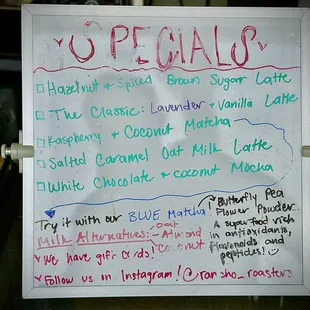 SPECIALS
Hazelnut + Spiced Brown Sugar Latte
The Classic: Lavender + Vanilla Latte
Raspberry + Coconut Matcha
Salted Caramel Oat Milk Latte
White Chocolate + Coconut Mocha
Try it with our BLUE Matcha
Butterfly Pea
Flower Powder..
A superfood rich
in antioxidants,
flavonoids and
peptides!
Milk Alternatives: -Oat
-Almond
-Coconut
We have gift cards!
Follow us on Instagram! @rancho_roasters